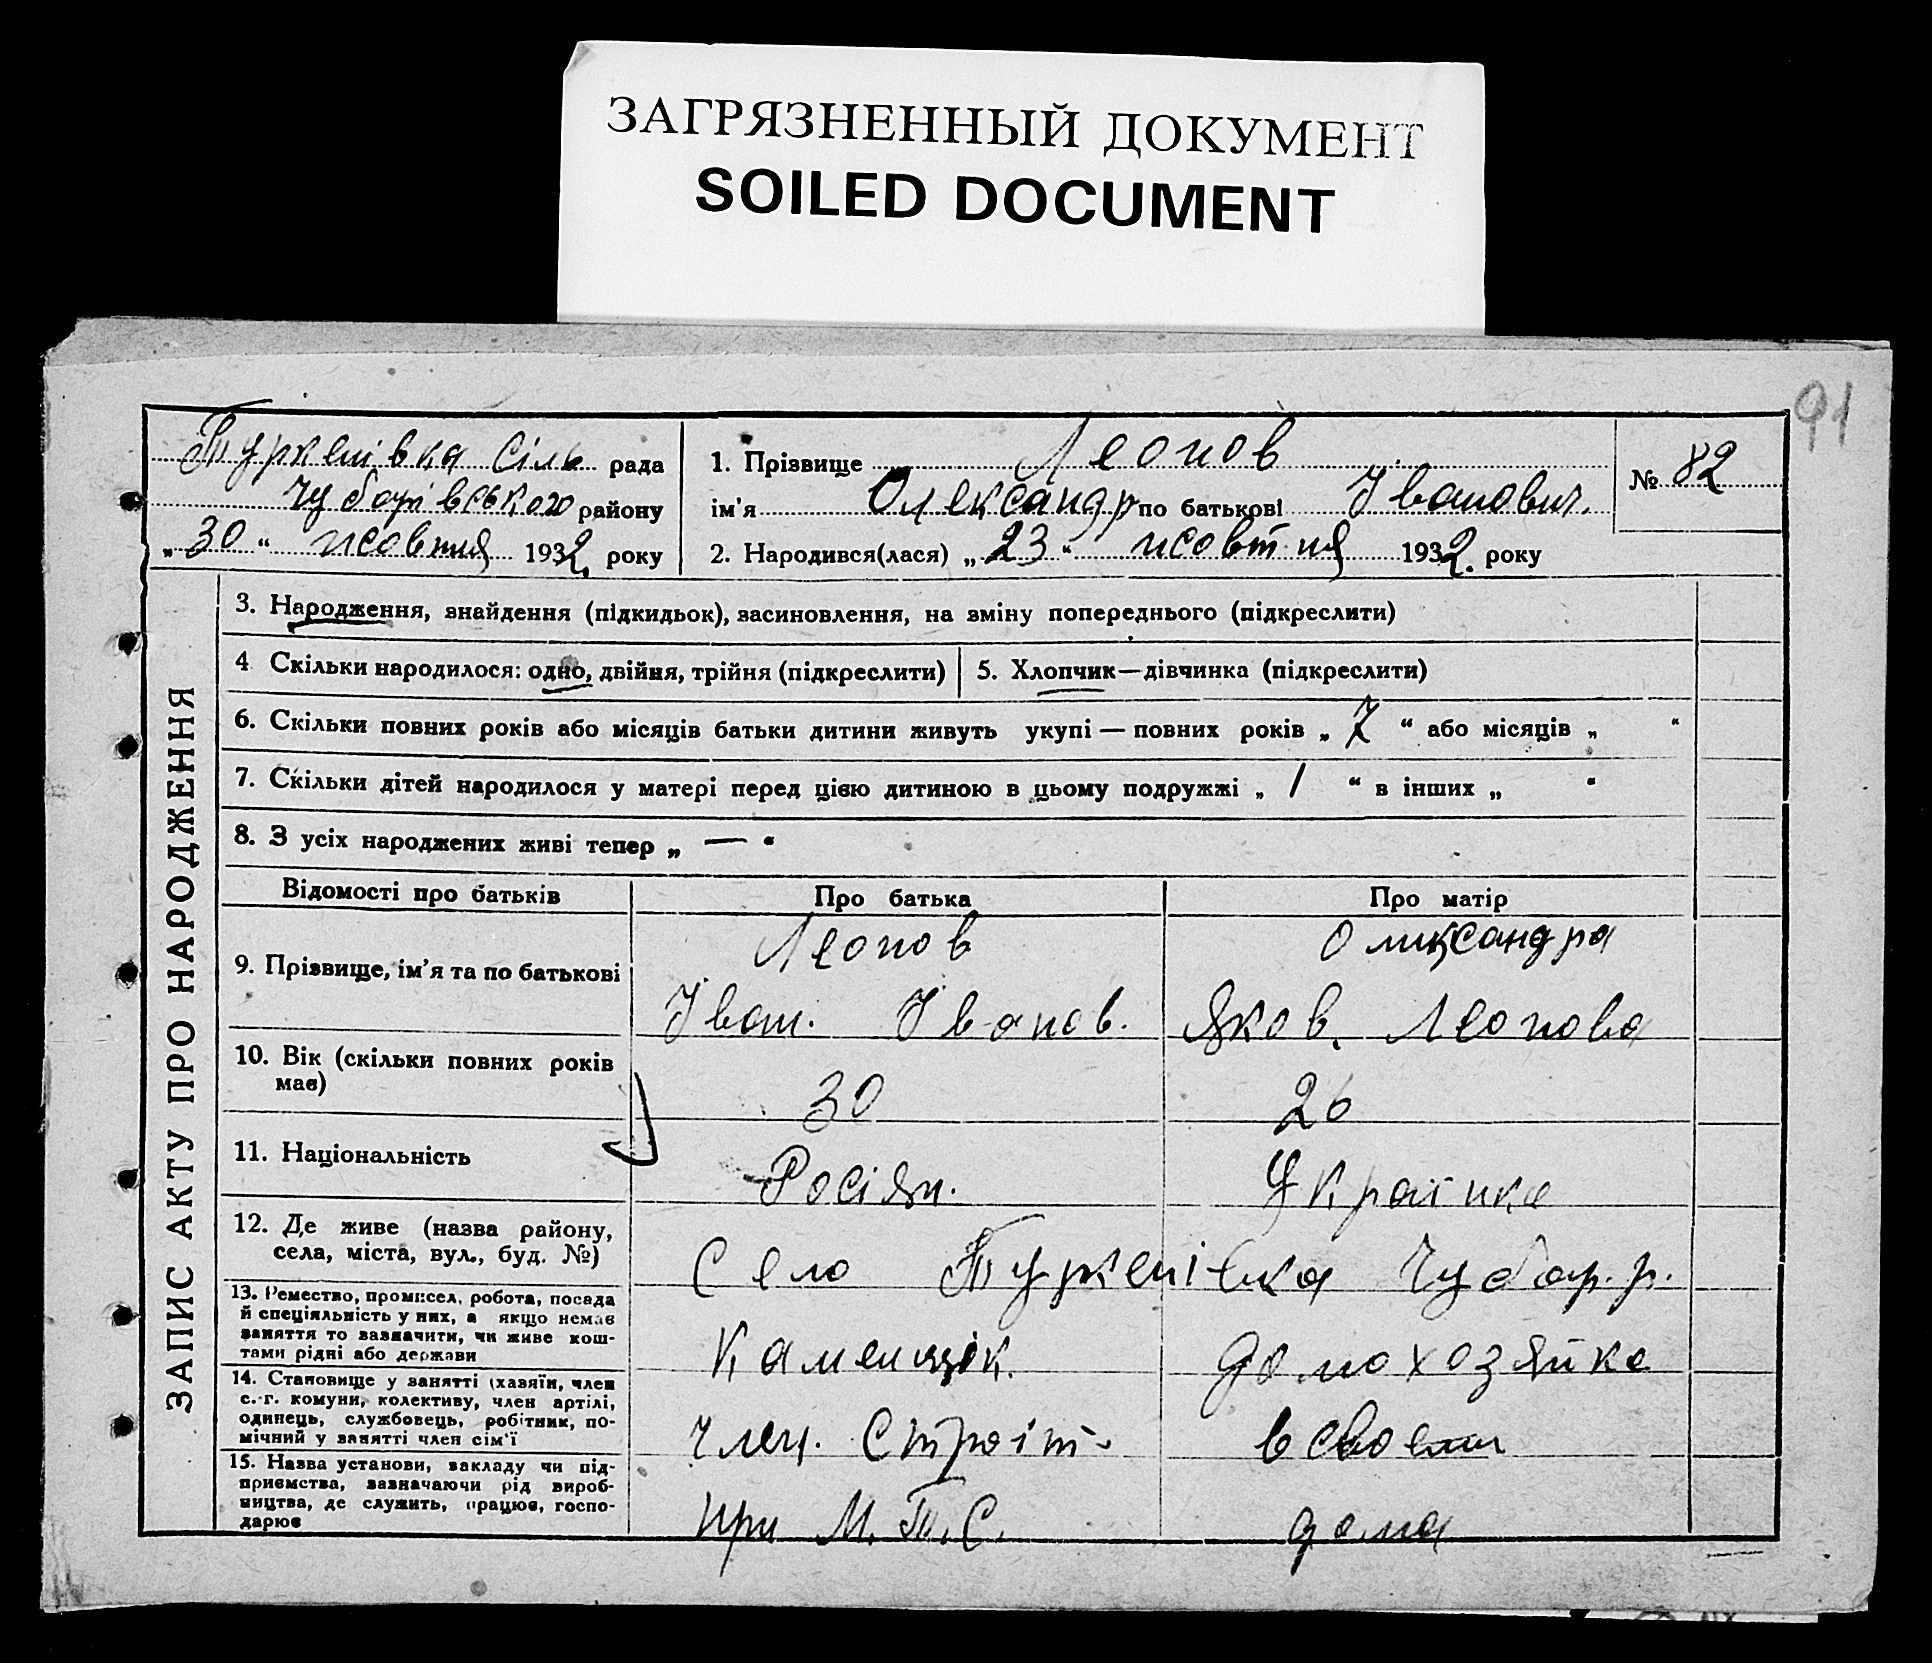 ЗАГРЯЗНЕННЫЙ ДОКУМЕНТ
SOILED DOCUMENT
91
Туркенівка Сіль рада
Чубарівського району
„ 30 “ жовтня 1932. року
1. Прізвище Леонов
ім'я Олександр по батькові Іванович.
2. Народився(лася) „ 23 “ жовтня 1932. року
№ 82
ЗАПИС АКТУ ПРО НАРОДЖЕННЯ
3. Народження, знайдення (підкидьок), засиновлення, на зміну попереднього (підкреслити)
4 Скільки народилося: одно, двійня, трійня (підкреслити)
5. Хлопчик—дівчинка (підкреслити)
6. Скільки повних років або місяців батьки дитини живуть укупі — повних років „ 7 “ або місяців „ “
7. Скільки дітей народилося у матері перед цією дитиною в цьому подружжі „ 1 “ в інших „ “
8. З усіх народжених живі тепер „ — “
Відомості про батьків
Про батька
Про матір
9. Прізвище, ім'я та по батькові
Леонов
Іван. Іванов.
Оликсандра
Яков. Леонова
10. Вік (скільки повних років
має)
30
26
11. Національність
Росіян.
Українка
12. Де живе (назва району,
села, міста, вул., буд. №)
Село Туркенівка Чубар. р.
13. Ремество, промисел, робота, посада
й спеціяльність у них, а якщо немає
заняття то зазначити, чи живе кош-
тами рідні або держави
Каменщік.
Домохозяйка
14. Становище у занятті (хазяїн, член
с.-г. комуни, колективу, член артілі,
одинець, службовець, робітник, по-
мічний у занятті член сім'ї
член. Строіт.
в своем
15. Назва установи, закладу чи під-
приємства, зазначаючи рід вироб-
ництва, де служить, працює, госпо-
дарює
при М.Т.С.
дома